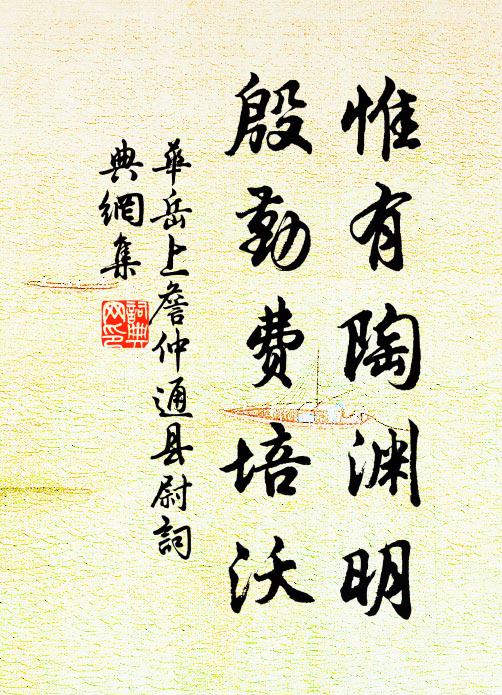 惟有陶渊明
殷勤费培沃
华岳上詹仲通县尉詞
典網集
詞典网印